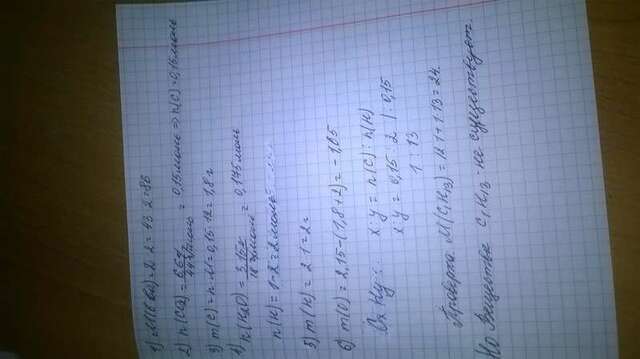 1) M(CxHy) = 2 · 2 = 43 · 2 = 86
2) n(CO2) = 6,6г / 44 г/моль = 0,15 моль => n(C) = 0,15 моль
3) m(C) = n · M = 0,15 · 12 = 1,8 г
4) n(H2O) = 3,15г / 18 г/моль = 0,175 моль
n(H) = 1 · 2 = 2 моль
5) m(H) = 2 · 1 = 2 г
6) m(O) = 2,15 - (1,8 + 2) = - 1,65
CxHy : x : y = n(C) : n(H)
x : y = 0,15 : 2 | : 0,15
1 : 13
Проверка M(C1H13) = 12 · 1 + 1 · 13 = 24.
Но Вещество C1H13 - не существует.